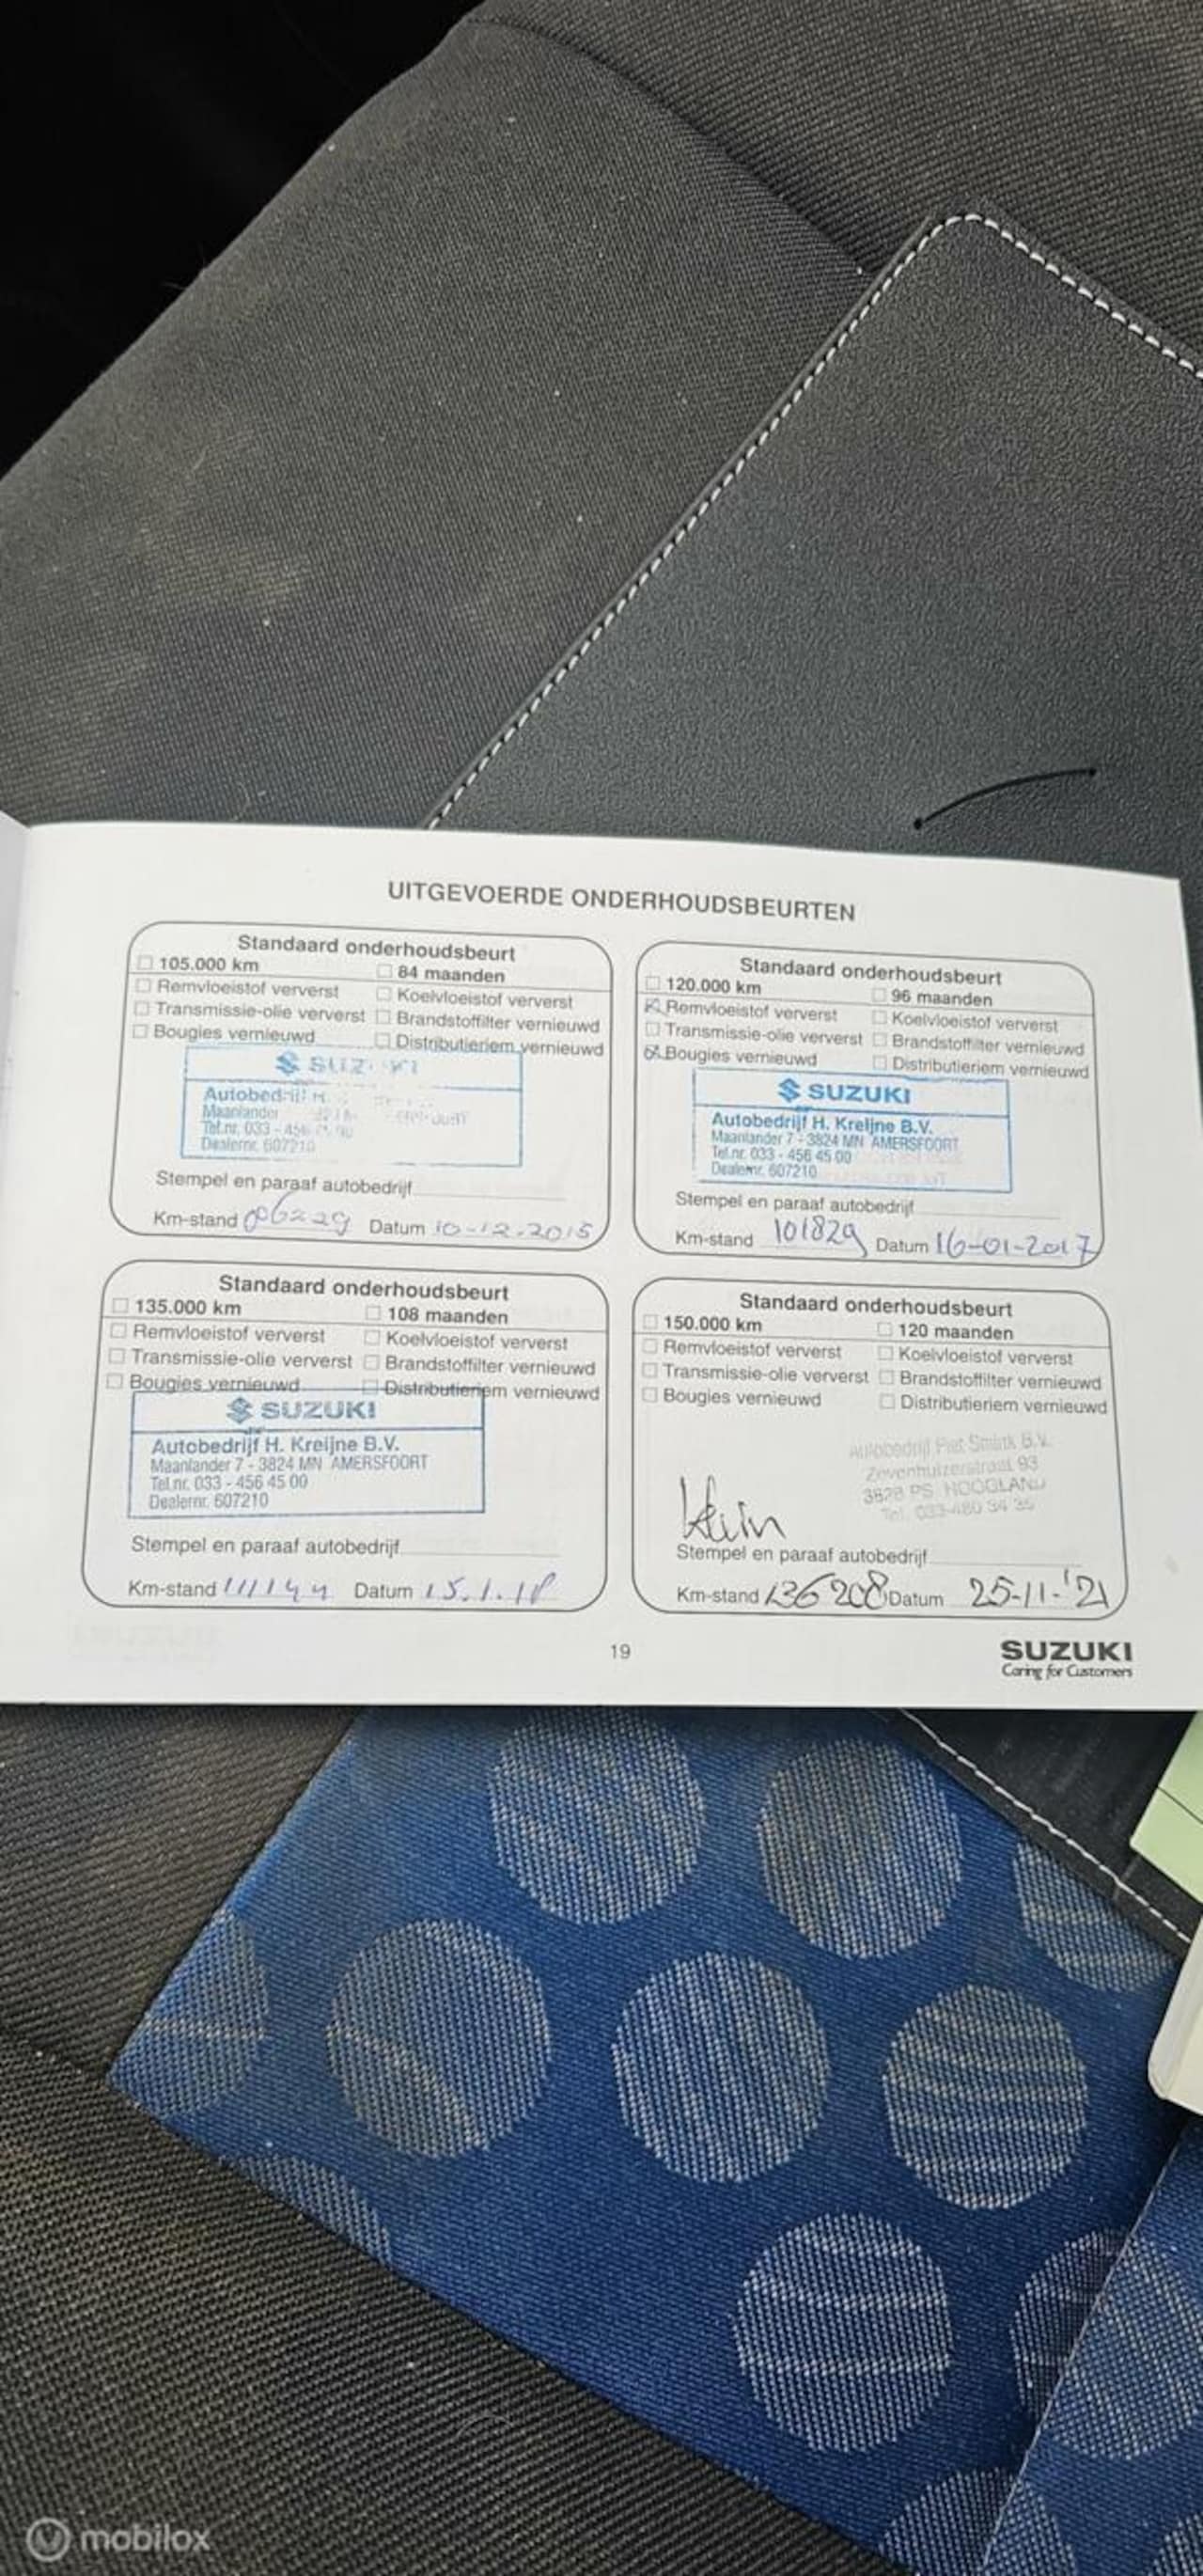 UITGEVOERDE ONDERHOUDSBEURTEN
Standaard onderhoudsbeurt
105.000 km 84 maanden
Remvloeistof ververst Koelvloeistof ververst
Transmissie-olie ververst Brandstoffilter vernieuwd
Bougies vernieuwd Distributieriem vernieuwd
SUZUKI
Autobedrijf H.
Maanlander
Tel.nr. 033 - 456
Dealernr. 607210
Stempel en paraaf autobedrijf
Km-stand Datum 10-12-2015
Standaard onderhoudsbeurt
120.000 km 96 maanden
Remvloeistof ververst Koelvloeistof ververst
Transmissie-olie ververst Brandstoffilter vernieuwd
Bougies vernieuwd Distributieriem vernieuwd
SUZUKI
Autobedrijf H. Kreijne B.V.
Maanlander 7 - 3824 MN AMERSFOORT
Tel.nr. 033 - 456 45 00
Dealernr. 607210
Stempel en paraaf autobedrijf
Km-stand 101829 Datum 16-01-2017
Standaard onderhoudsbeurt
135.000 km 108 maanden
Remvloeistof ververst Koelvloeistof ververst
Transmissie-olie ververst Brandstoffilter vernieuwd
Bougies vernieuwd Distributieriem vernieuwd
SUZUKI
Autobedrijf H. Kreijne B.V.
Maanlander 7 - 3824 MN AMERSFOORT
Tel.nr. 033 - 456 45 00
Dealernr. 607210
Stempel en paraaf autobedrijf
Km-stand 111144 Datum 15.1.18
Standaard onderhoudsbeurt
150.000 km 120 maanden
Remvloeistof ververst Koelvloeistof ververst
Transmissie-olie ververst Brandstoffilter vernieuwd
Bougies vernieuwd Distributieriem vernieuwd
Autobedrijf Piet Smink B.V.
Zevenhuizerstraat 93
3828 PS HOOGLAND
Tel. 033-480 34 35
Stempel en paraaf autobedrijf
Km-stand 136208 Datum 25-11-'21
19
SUZUKI
Caring for Customers
mobilox